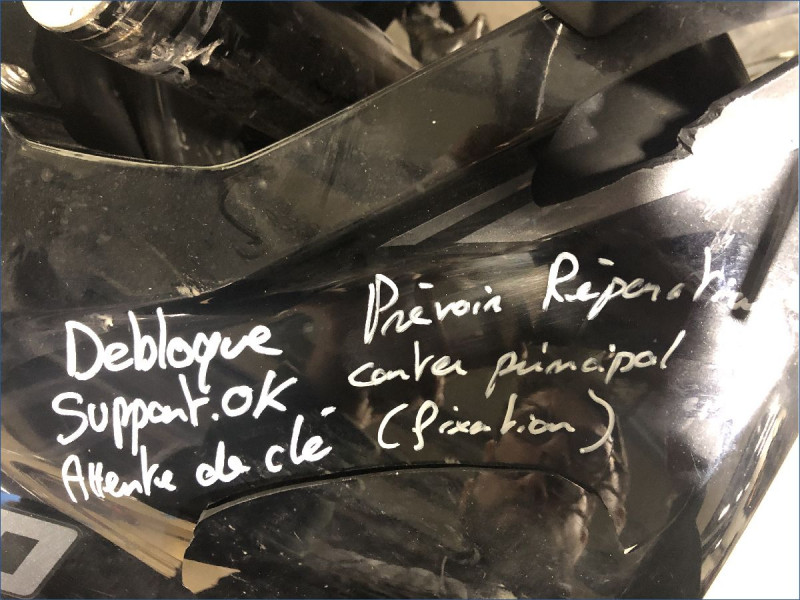 Debloque
Support.OK
Attente de clé
Prévoir Réparation
conter principal
(fixation)